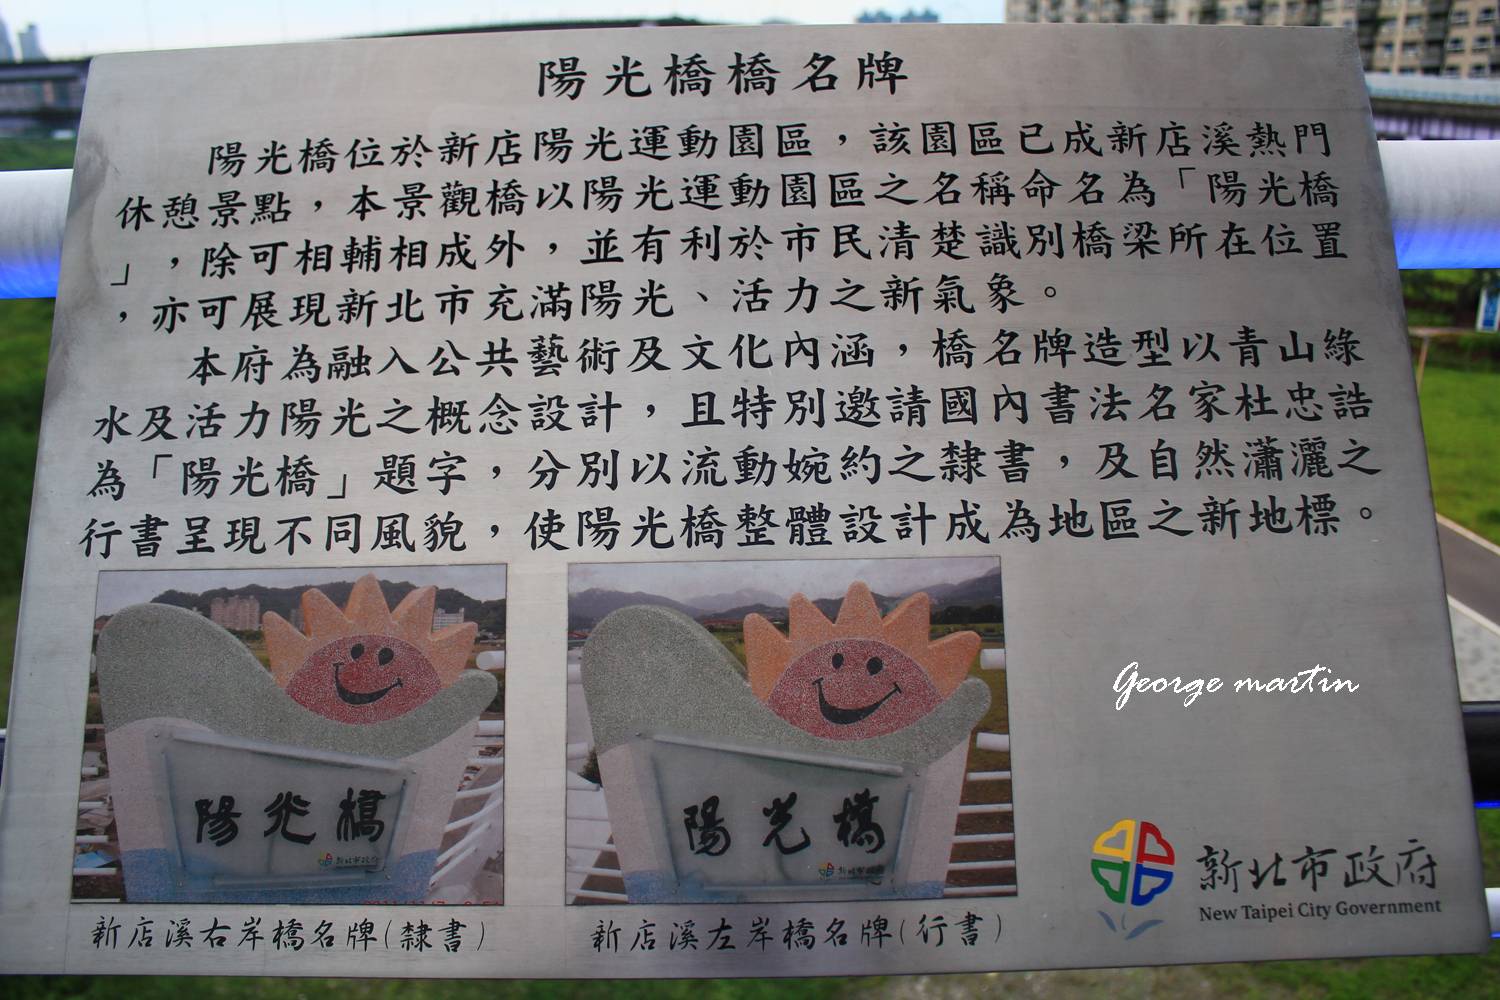 陽光橋橋名牌
陽光橋位於新店陽光運動園區，該園區已成新店溪熱門
休憩景點，本景觀橋以陽光運動園區之名稱命名為「陽光橋
」，除可相輔相成外，並有利於市民清楚識別橋梁所在位置
，亦可展現新北市充滿陽光、活力之新氣象。
本府為融入公共藝術及文化內涵，橋名牌造型以青山綠
水及活力陽光之概念設計，且特別邀請國內書法名家杜忠誥
為「陽光橋」題字，分別以流動婉約之隸書，及自然瀟灑之
行書呈現不同風貌，使陽光橋整體設計成為地區之新地標。
陽光橋
新北市政府
陽光橋
新北市政府
George martin
新北市政府
New Taipei City Government
新店溪右岸橋名牌(隸書)
新店溪左岸橋名牌(行書)